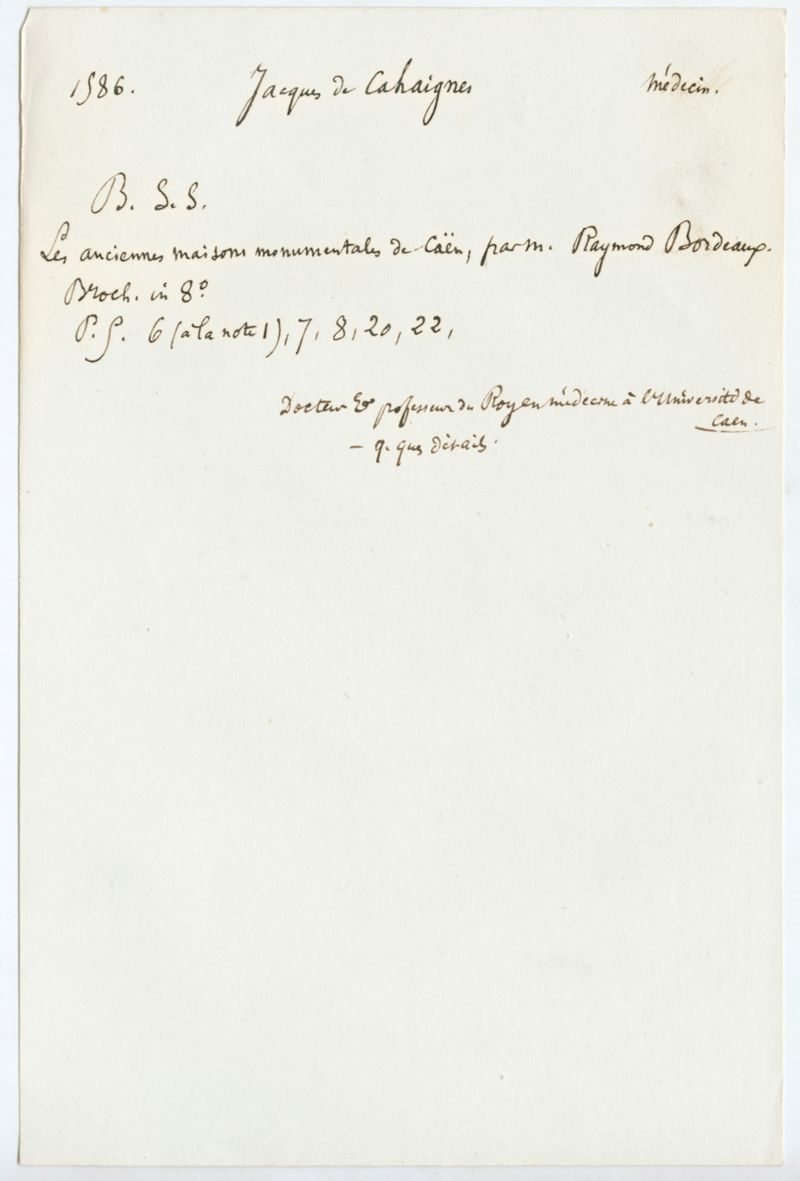 1586. Jacques de Cahaignes médecin.
B. S. S.
Les anciennes maisons monumentales de Caën, par M. Raymond Bordeaux.
Broch. in 8º
P. G. 6 (à la note 1), 7, 8, 20, 22,
Docteur & professeur du Roy en médecine à l'Université de
Caen.
- q. ques détails.